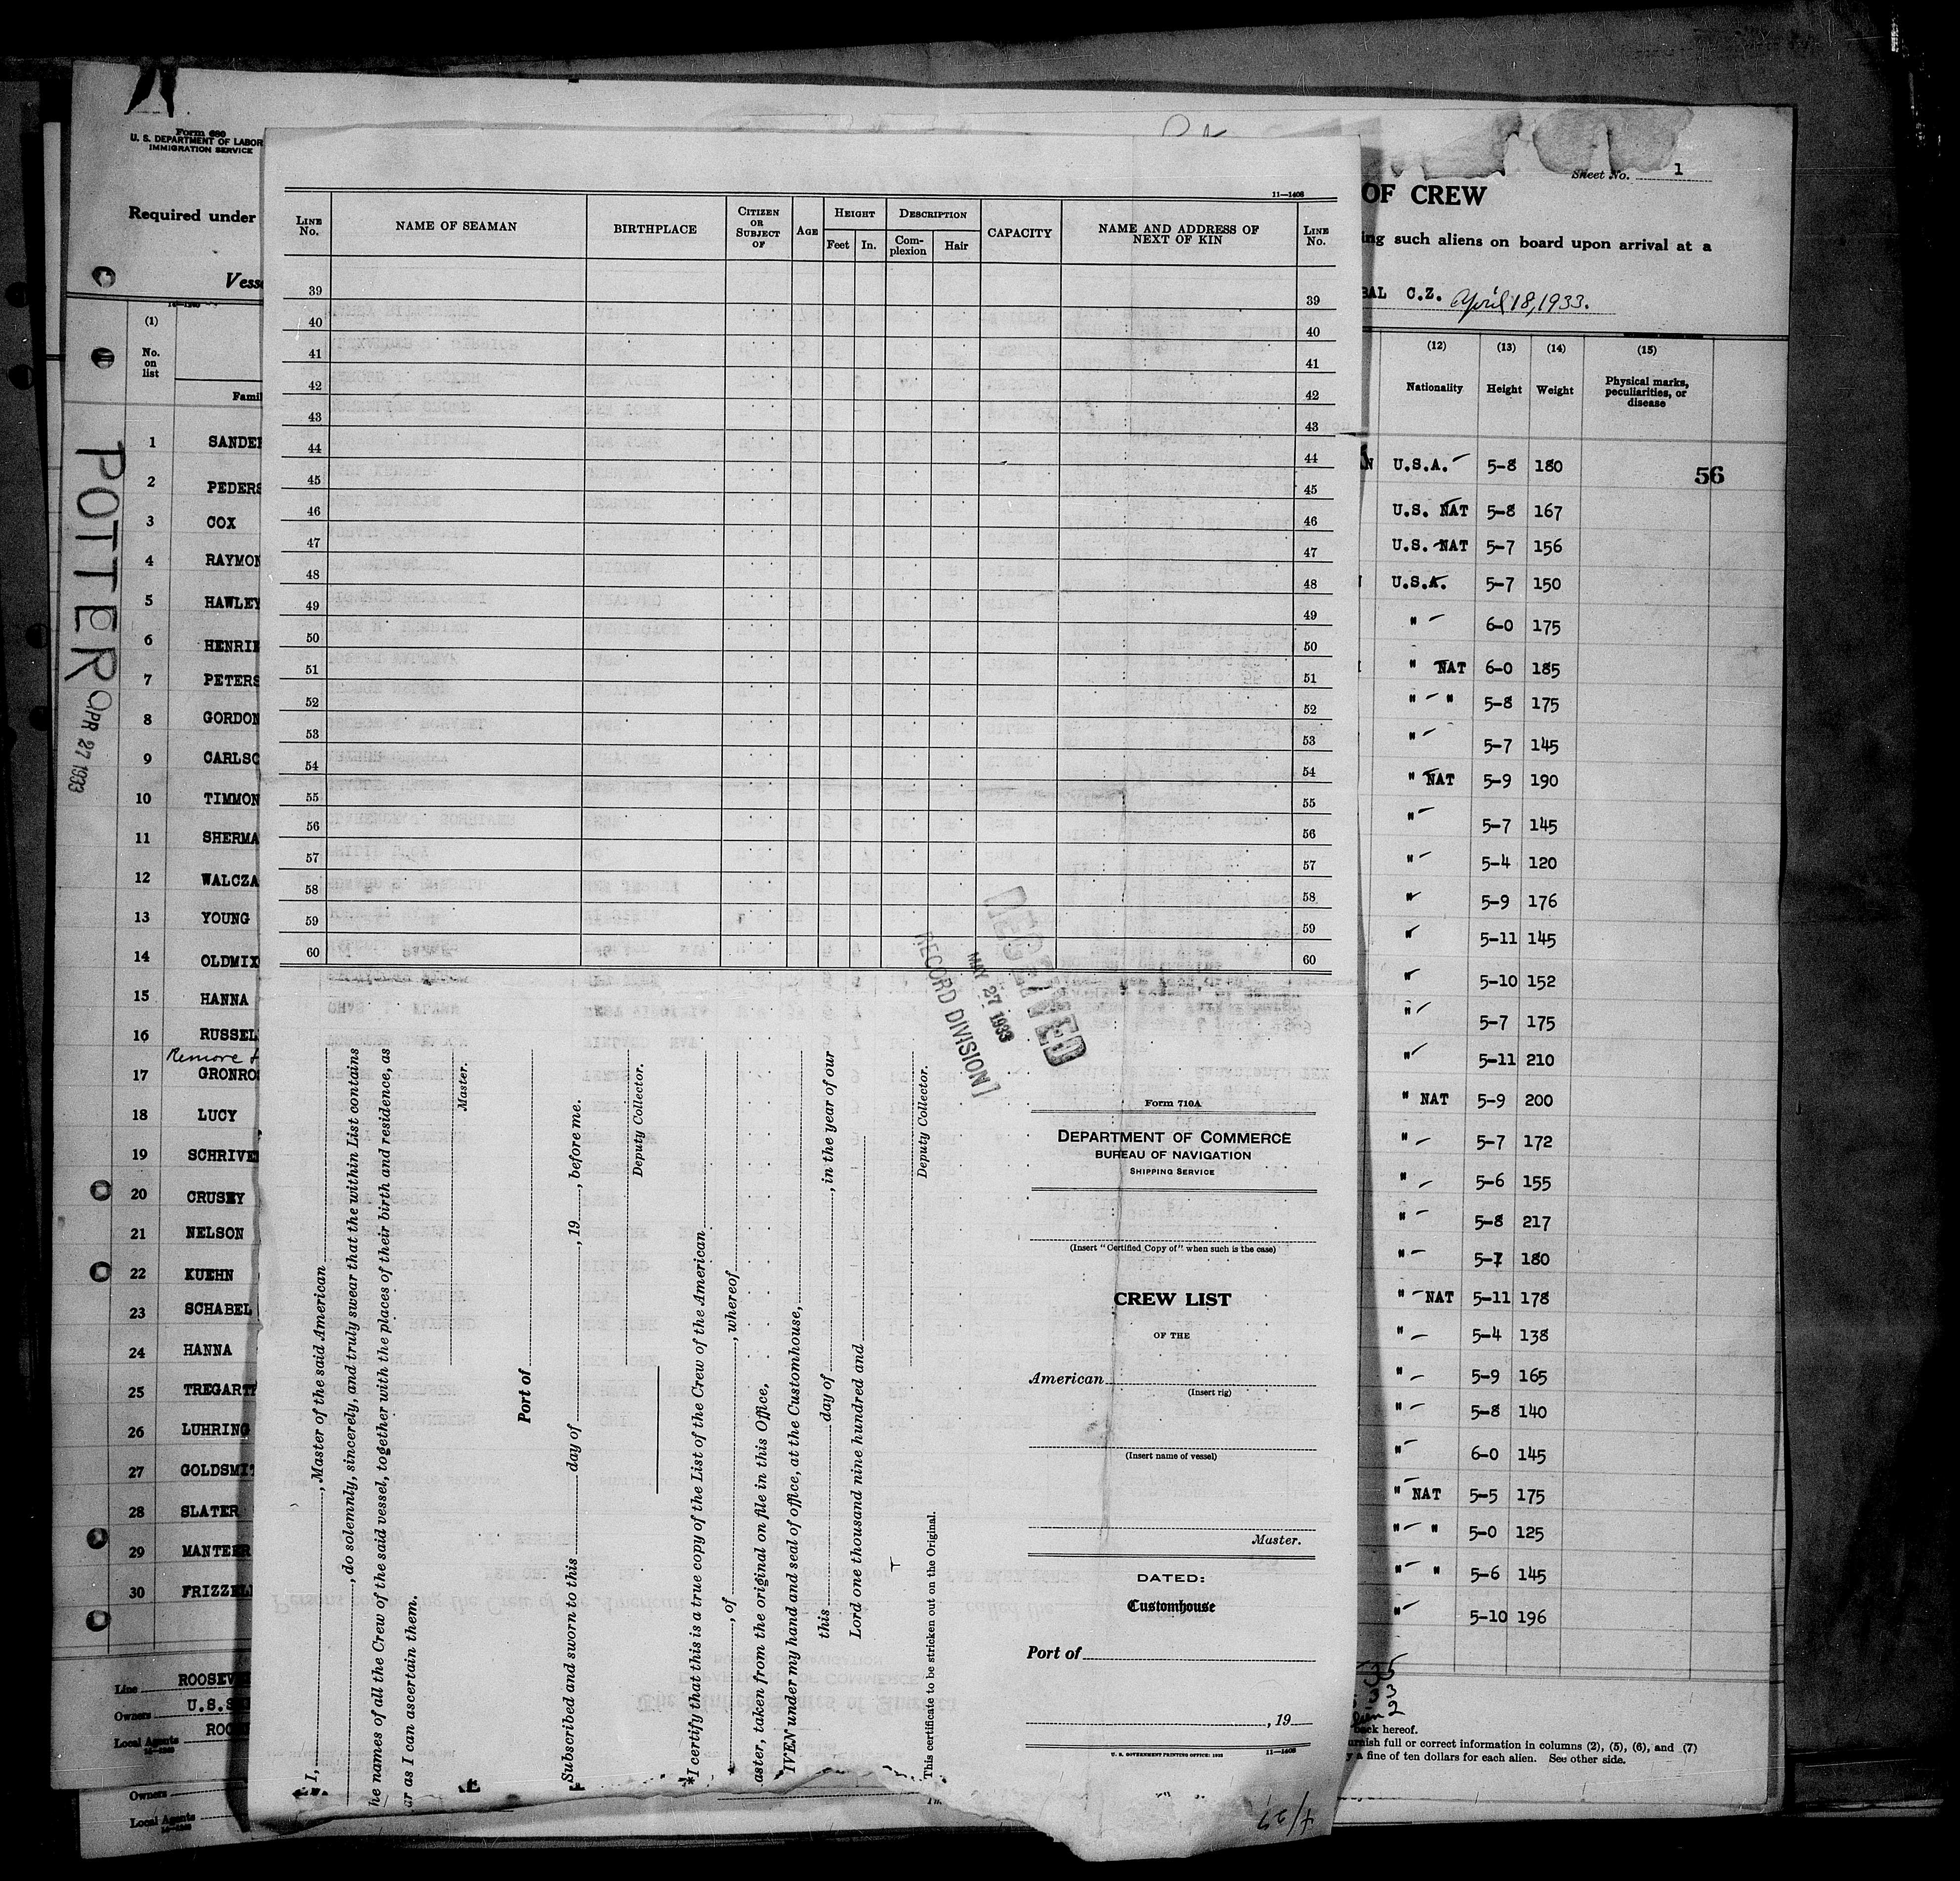 Form 680
U. S. DEPARTMENT OF LABOR
IMMIGRATION SERVICE
Required under
(1)
No.
on
list
1 SANDE
2 PEDERS
3 COX
4 RAYMON
5 HAWLEY
6 HENRI
7 PETERS
8 GORDON
9 CARLSO
10 TIMMON
11 SHERMA
12 WALCZA
13 YOUNG
14 OLDMIX
15 HANNA
16 RUSSEL
Remove
17 GRONRO
18 LUCY
19 SCHRIVE
20 CRUSEY
21 NELSON
22 KUEHN
23 SCHABEL
24 HANNA
25 TREGART
26 LUHRING
27 GOLDSMIT
28 SLATER
29 MANTEER
30 FRIZZEL
Line ROOSEVE
Owners U.S.S
Local Agents ROO
Owners
Local Agents
POTTER
APR 27 1933
11—1408
LINE No. NAME OF SEAMAN BIRTHPLACE CITIZEN OR SUBJECT OF AGE HEIGHT Feet In. DESCRIPTION Complexion Hair CAPACITY NAME AND ADDRESS OF NEXT OF KIN LINE No.
39 39
40 40
41 41
42 42
43 43
44 44
45 45
46 46
47 47
48 48
49 49
50 50
51 51
52 52
53 53
54 54
55 55
56 56
57 57
58 58
59 59
60 60
RECEIVED
MAY 27 1933
RECORD DIVISION
I, , Master of the said American
, do solemnly, sincerely, and truly swear that the within List contains
he names of all the Crew of the said vessel, together with the places of their birth and residence, as
ar as I can ascertain them.
Master.
Port of
Subscribed and sworn to this day of , 19 , before me.
Deputy Collector.
*I certify that this is a true copy of the List of the Crew of the American
, of , whereof
aster, taken from the original on file in this Office,
IVEN under my hand and seal of office, at the Customhouse,
this day of , in the year of our
Lord one thousand nine hundred and
Deputy Collector.
This certificate to be stricken out on the Original.
Form 710A
DEPARTMENT OF COMMERCE
BUREAU OF NAVIGATION
SHIPPING SERVICE
(Insert "Certified Copy of" when such is the case)
CREW LIST
OF THE
American
(Insert rig)
(Insert name of vessel)
Master.
DATED:
Customhouse
Port of
, 19
U. S. GOVERNMENT PRINTING OFFICE: 11—1408
4/27
Sheet No. 1
OF CREW
ing such aliens on board upon arrival at a
BAL C.Z. April 18, 1933.
(12) (13) (14) (15)
Nationality Height Weight Physical marks, peculiarities, or disease
U.S.A. 5-8 180
56
U.S. NAT 5-8 167
U.S. NAT 5-7 156
U.S.A. 5-7 150
" 6-0 175
" NAT 6-0 185
" " 5-8 175
" 5-7 145
" NAT 5-9 190
" 5-7 145
" 5-4 120
" 5-9 176
" 5-11 145
" 5-10 152
" 5-7 175
" 5-11 210
" NAT 5-9 200
" 5-7 172
" 5-6 155
" 5-8 217
" 5-7 180
" NAT 5-11 178
" 5-4 138
" 5-9 165
" 5-8 140
" 6-0 145
" NAT 5-5 175
" " 5-0 125
" " 5-6 145
" 5-10 196
back hereof.
urnish full or correct information in columns (2), (5), (6), and (7)
y a fine of ten dollars for each alien. See other side.